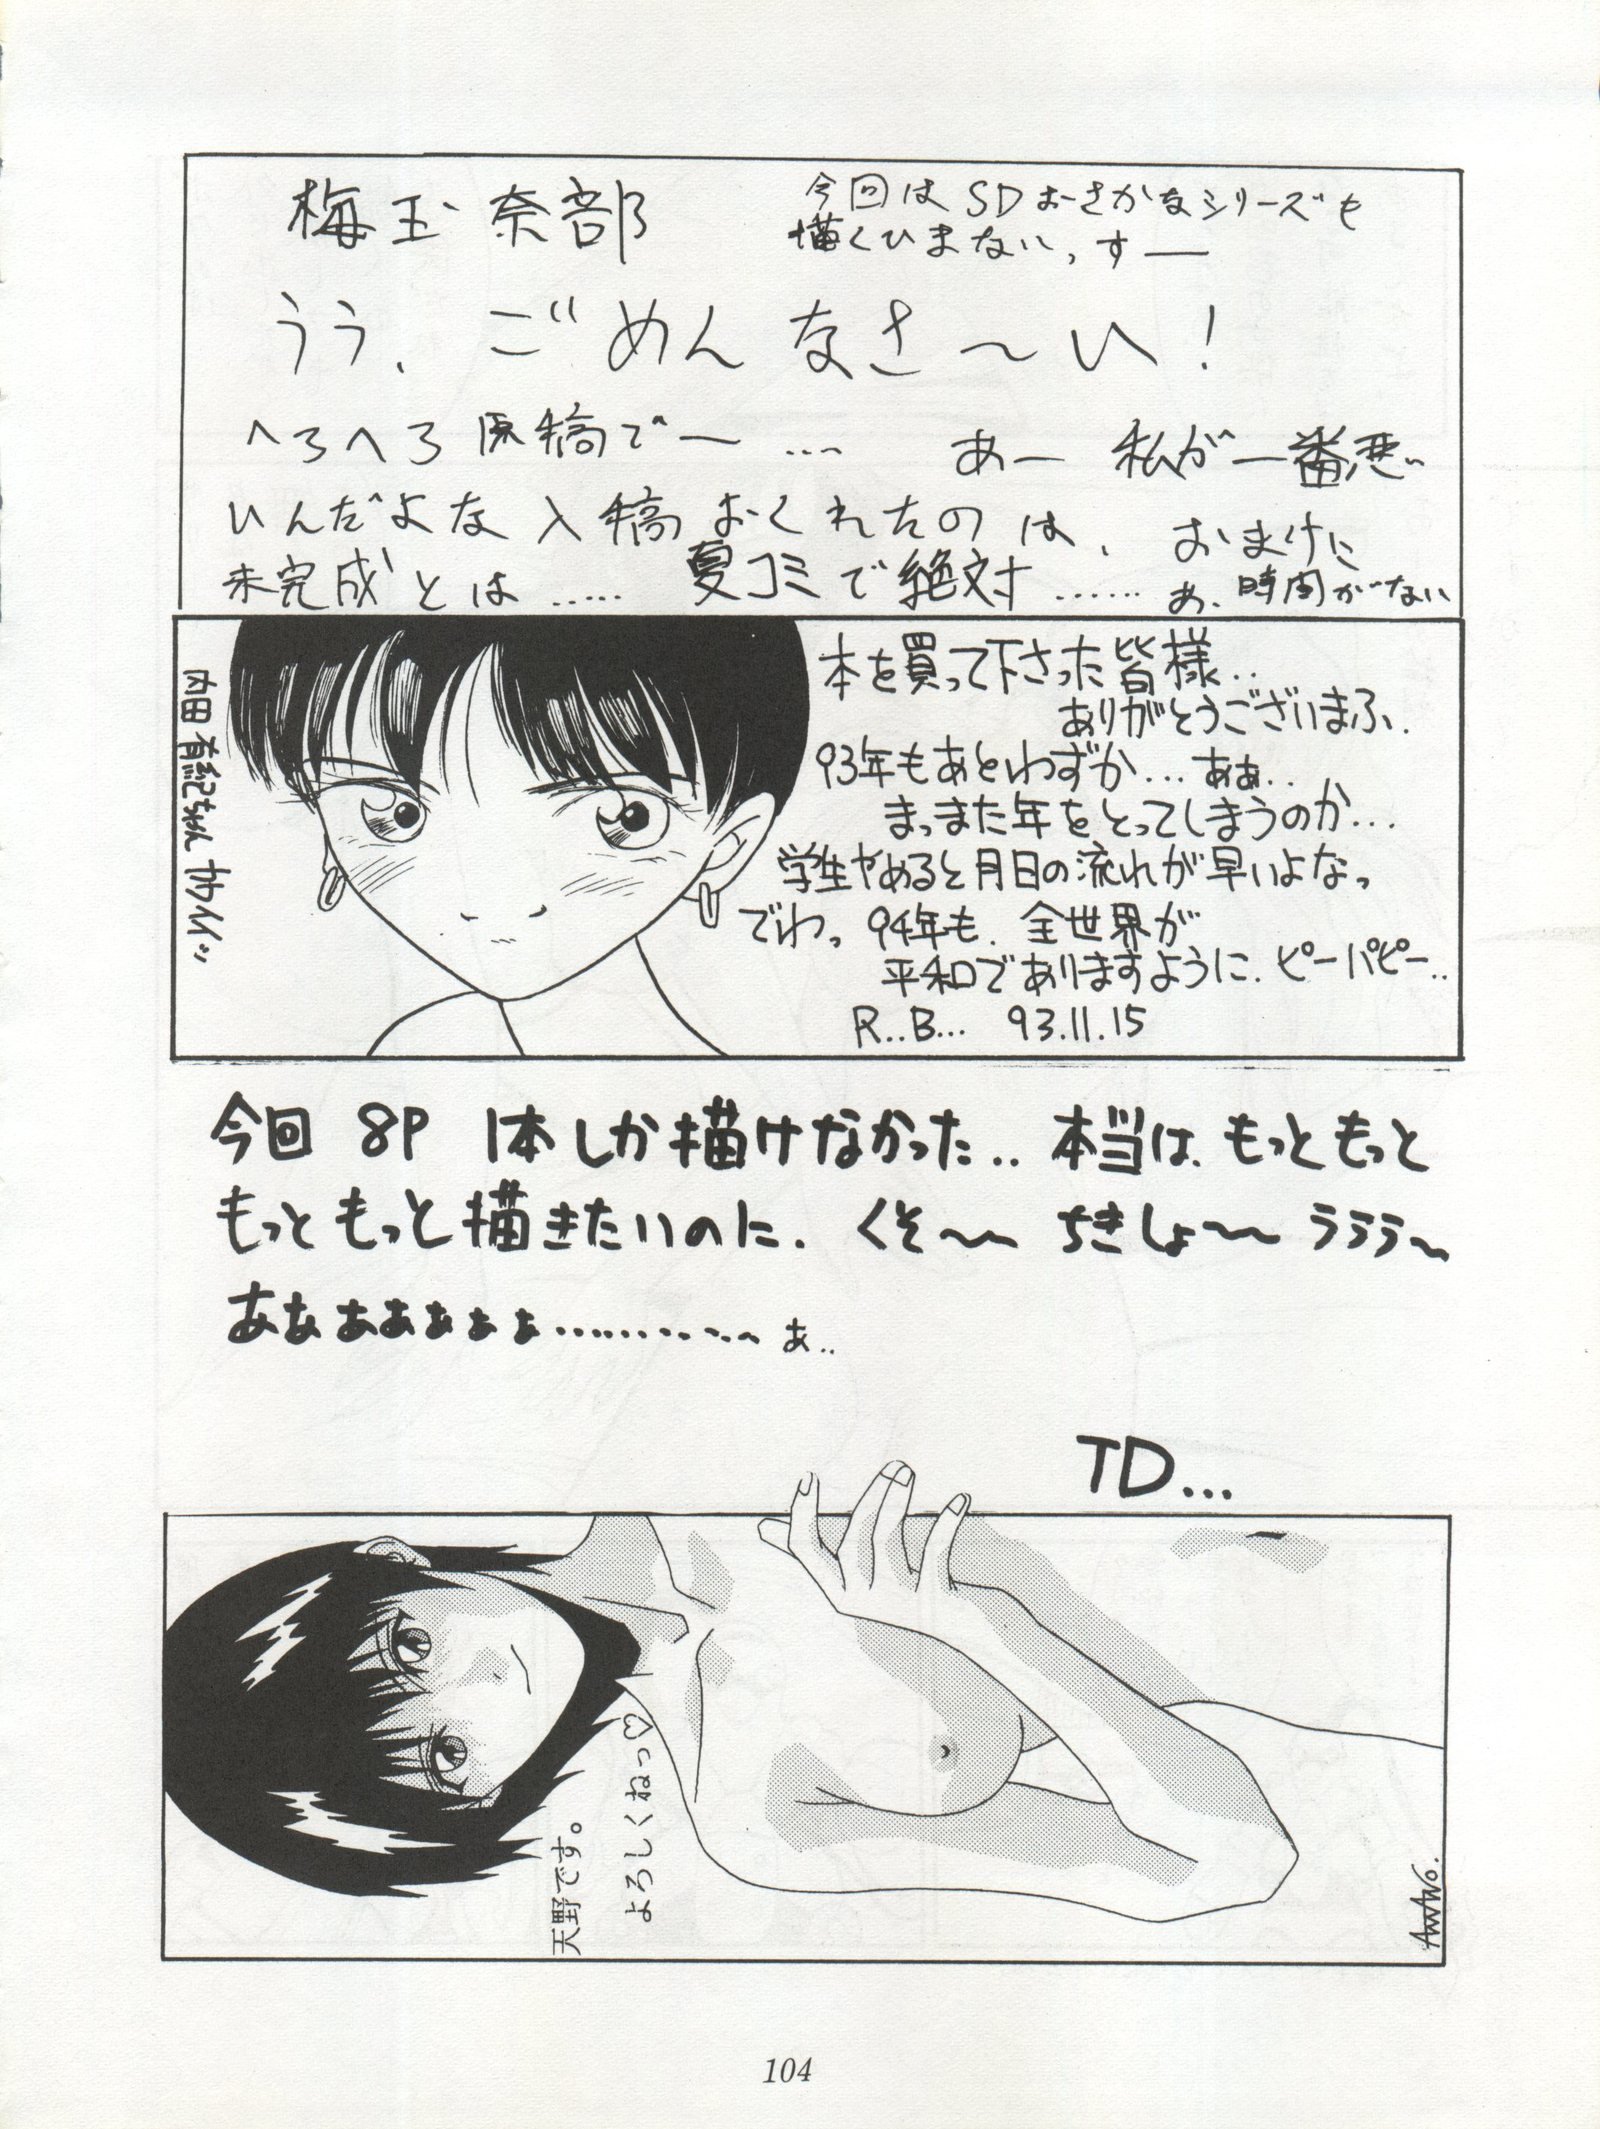 梅玉奈部
今回はSDおさかなシリーズも
描くひまないっすー
うう、ごめんなさ〜い!
へろへろ原稿でー…. あー 私が一番悪い
いんだよな入稿おくれたのは、おまけに
未完成とは….. 夏コミで絶対…… あ、時間がない
内田有紀ちゃんカワイイッ
本を買って下さった皆様..
ありがとうございまふ.
93年もあとわずか... ああ..
まっまた年をとってしまうのか...
学生やめると月日の流れが早いよなっ
でわっ 94年も、全世界が
平和でありますように. ピーパピー..
R..B... 93.11.15
今回 8P 1本しか描けなかった.. 本当は、もっともっと
もっともっと描きたいのに. くそ〜〜 ちきしょ〜〜 ううう〜
ああぁぁぁぁぁ………… ぁ..
TD...
天野です。
よろしくねっ♡
AMANO.
104